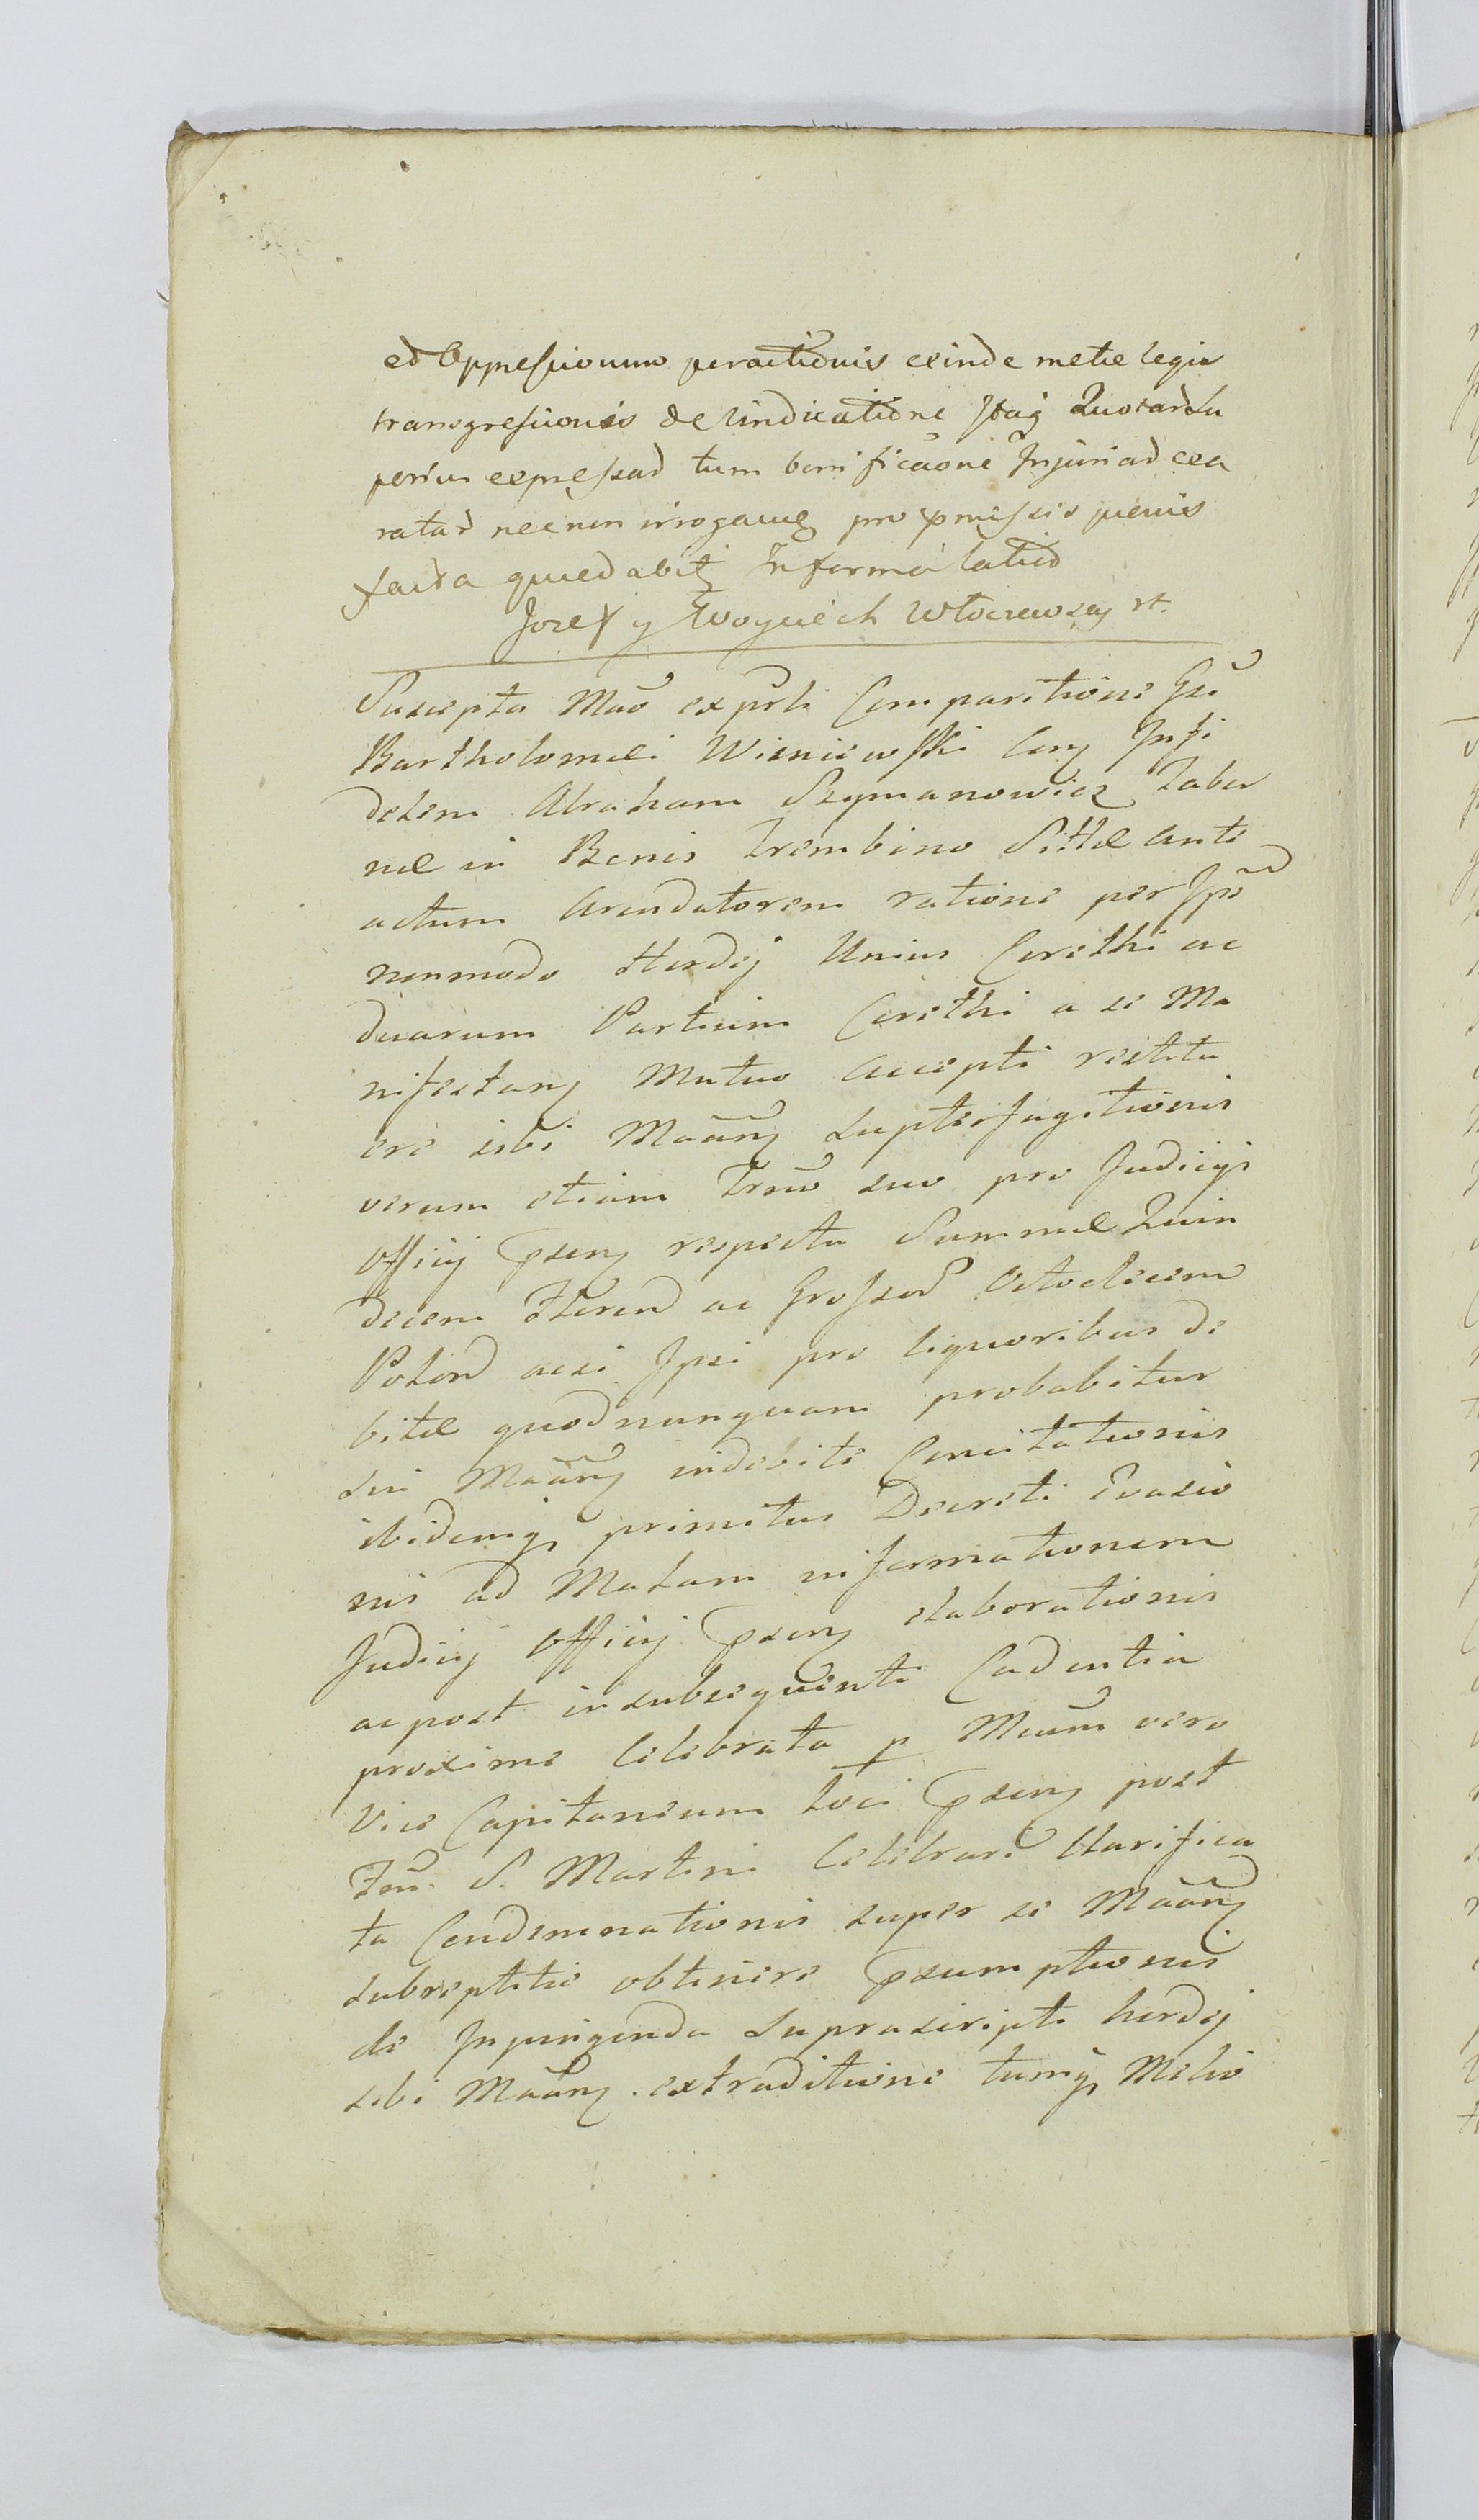 ed Oppressionum peractionis exinde metae legis
transgressionis de vindicatione Itaq Quorard Su
perius expressad tum bonificaone Injuriad exa
ratad necnon irrogaueq pro pmissis paenis
facta quaedabit Informa latiod
Jozef y Woyciech Włoczewscy st.
Suscepta Mao ex prli Comparitione Gsi
Bartholomaei Wisniewski Con Infi
delem Abraham Szymanowicz Taber
nae in Bonis Trembino Sittae ante
actum Arendatorem ratione per Ipsd
nonmodo Hordej Unius Corethi ac
duarum Partium Corethi a se Ma
nifestanj Mutuo Accepti restitu
ere sibi Maanj supterfugitionis
verum etiam Tremo suo pro Judicijs
Officij psenj respectu Summae Quin
decem Florend ac Grossod Octodecem
Polond acsi Ipsi pro liquoribus de
bitae quod nunquam probabitur
sui Maanj indebite Concitationis
ibidemq primitus Decreti Evasio
nis ad Malam informationem
Judicij Officij psenj elaborationis
ac post in subsequenti Cadentia
proxime Celebrata p Mcum vero
Vice Capitaneum loci psenj post
Ftu. S. Martini Celebrari Clarifica
ta Condemnationis super se Maanj
subreptitie obtinere psumptionis
de Inpingenda suprascripti hordej
sibi Maanj extraditione tumq Melio